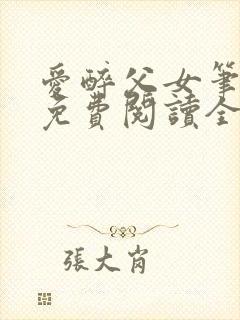 愛醉父女筆
免費閱讀全
張大肖